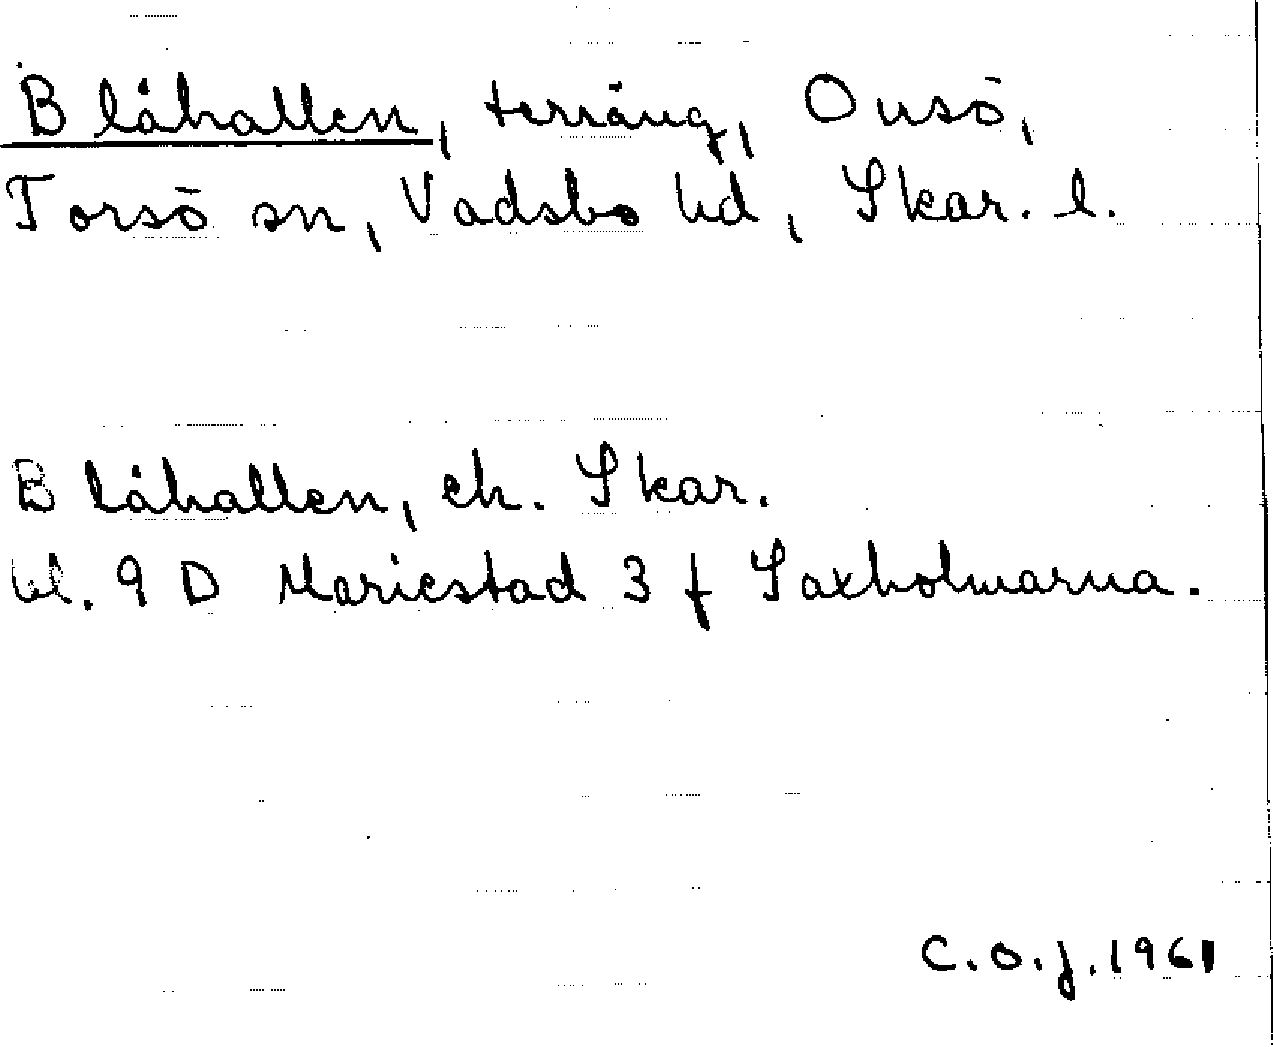 Blåhallen, terräng, Onsö,
Torsö sn, Vadsbo hd, Skar. l.
Blåhallen, ek. Skar.
bl. 9 D Mariestad 3 f Saxholmarna.
C.O.J. 1961